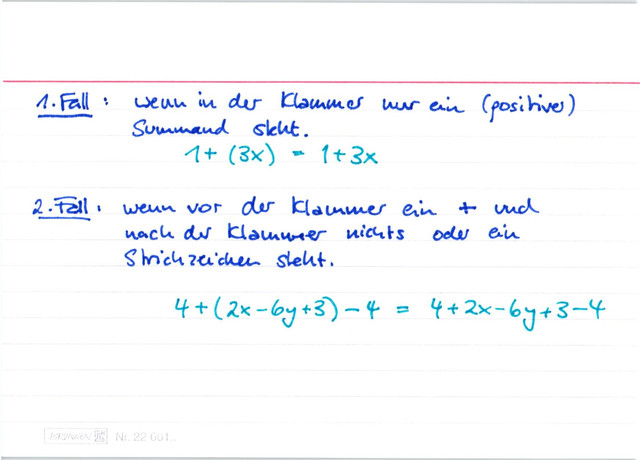 1. Fall: wenn in der Klammer nur ein (positiver)
Summand steht.
1 + (3x) = 1 + 3x
2. Fall: wenn vor der Klammer ein + und
nach der Klammer nichts oder ein
Strichzeichen steht.
4 + (2x - 6y + 3) - 4 = 4 + 2x - 6y + 3 - 4
Nr. 22